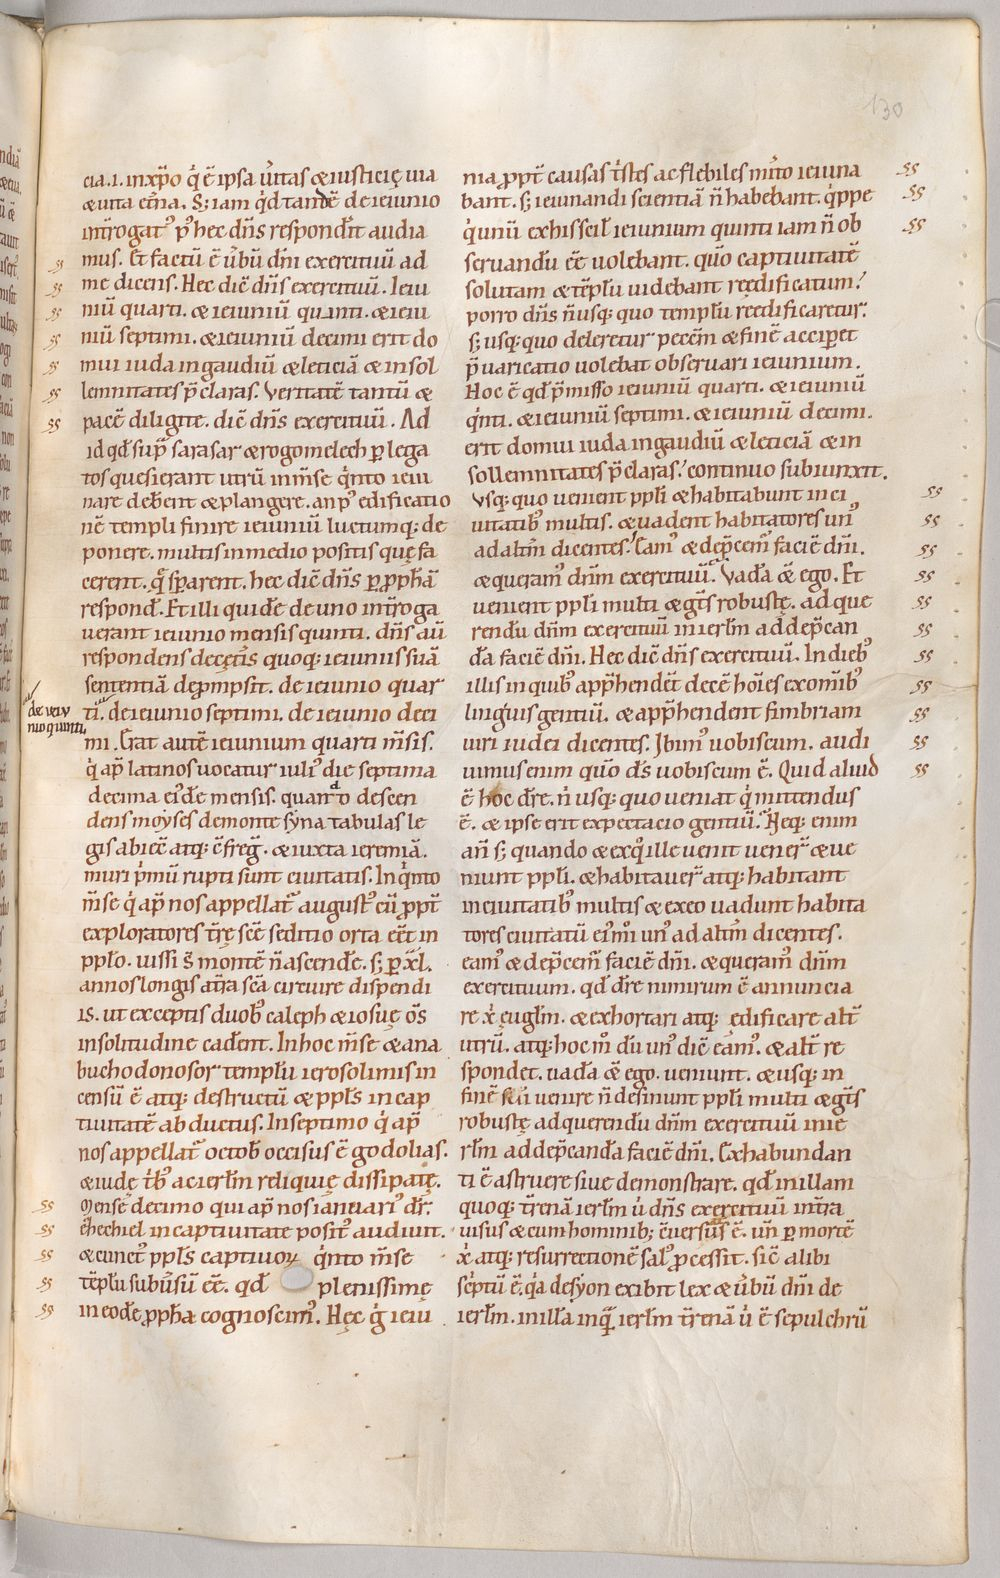 130
cia .i. in xp̄o q̇ ē ipsa ūitas & iusticię uia
& uita et̄na. S; iam q̇d tandē de ieiunio
int̄rogatꝰ pꝰ hec dn̄s respondit̄ audia
mus. Et factū ē ūbū dn̄i exercituū ad
me dicens. Hec dic̄ dn̄s exercituū. Ieiu
niū quarti. & ieiuniū quinti. & ieiu
niū septimi. & ieiuniū decimi erit do
mui iuda in gaudiū & leticiā & in sol
lemnitates p̄claras. Veritatē tantū &
pacē diligite. dic̄ dn̄s exercituū. Ad
id qd̄ sup̄ sarasar & rogomelech ꝑ lega
tos quesierant utrū in m̄se q̇nto ieiu
nare deberent & plangere. an pꝰ edificatio
nē templi finire ieiuniū luctumq; de
ponere. multis in medio positis quę fa
cerent. q̄ sꝑarent. hec dic̄ dn̄s ꝑ pphā
respond̄. Et illi quidē de uno int̄roga
uerant ieiunio mensis quinti. dn̄s aū
respondens de cęt̄is quoq; ieiuniis suā
sententiā deprompsit. de ieiunio quar
de ieiu
nio quinti
ti. de ieiunio septimi. de ieiunio deci
mi. Erat autē ieiunium quarti m̄sis.
q̇ ap̄ latinos uocatur iuliꝰ die septima
decima eiꝰdē mensis. quando descen
dens moyses de monte syna tabulas le
gis abiecit atq; cf̄reḡ. & iuxta ieremiā.
muri ṗmū rupti sunt ciuitatis. In q̇nto
m̄se q̇ ap̄ nos appellat̄ augustꝰ cū ꝓpt̄
exploratores t̄rę sc̄ę seditio orta eēt in
pplo. uissi s̄ montē n̄ ascendē. s; ꝑ xl.
annos longis at̄ra sc̄ā circuire dispendi
is. ut exceptis duobꝰ caleph & iosuę om̄s
in solitudine cadent. In hoc m̄se & ana
buchodonosor templū ierosolimis in
censū ē atq; destructū & ppl̄s in cap
tiuitatē abductus. In septimo q̇ ap̄
nos appellat̄ octob̄ occisus ē godolias.
& iudę t̄bꝰ ac ierl̄m reliquię dissipatę.
Mense decimo qui ap̄ nos ianuariꝰ dr̄.
ezechiel in captiuitate positꝰ audiuit.
& cunctꝰ ppl̄s captiuoꝝ q̇nto m̄se
tēplū subūsū eē. qd̄ plenissimę
in eodē ꝓpha cognoscimꝰ. Hęc g̣ ieiu
nia ꝓpt̄ causas t̄stes ac flebiles mīto ieiuna
bant. s; ieiunandi scientiā n̄ habebant. q̇ppe
q̇ unū ex his scil̄ ieiunium quinti iam n̄ ob
seruandū eē uolebant. quō captiuitatē
solutam & tēplū uidebant reędificatum.
porro dn̄s n̄ usq; quo templū reedificaretur.
s; usq; quo deleretur peccm̄ & finē acciperet
p̄uaricatio uolebat obseruari ieiunium.
Hoc ē qd̄ p̄misso ieiuniū quarti. & ieiuniū
q̇nti. & ieiuniū septimi. & ieiuniū decimi.
erit domui iuda in gaudiū & leticiā & in
sollemnitates p̄claras. continuo subiunxit.
Vsq; quo uenient ppl̄i & habitabunt in ci
uitatibꝰ multis. & uadent habitatores unꝰ
ad altm̄ dicentes. Eamꝰ & dep̄cemꝰ faciē dn̄i.
& queramꝰ dn̄m exercituū. Vadā & ego. Et
uenient ppl̄i multi & gt̄s robustę. ad que
rendū dn̄m exercituū in ierl̄m ad dep̄can
dā faciē dn̄i. Hec dic̄ dn̄s exercituū. In diebꝰ
illis in quibꝰ app̄hendet̄ decē hoīes ex omībꝰ
linguis gentiū. & app̄hendent fimbriam
uiri iudei dicentes. Ibimꝰ uobiscum. audi
uimus enim quō ds̄ uobiscum ē. Quid aliud
ē hoc dr̄e. n̄ usq; quo ueniat q̇ mittendus
ē. & ipse erit expectacio gentiū. Neq; enim
an̄ s; quando & ex q̊ ille uenit uener̄ & ue
niunt ppl̄i. & habitauer̄ atq; habitant
in ciuitatibꝰ multis & ex eo uadunt habita
tores ciuitatū eiꝰmi unꝰ ad altm̄ dicentes.
eamꝰ & dep̄cemꝰ faciē dn̄i. & queramꝰ dn̄m
exercituum. qd̄ dr̄e nimirum ē annuncia
re ẋ euglm̄. & exhortari atq; ędificare alt̄
utrū. atq; hoc mꝰ dū unꝰ dic̄ eamꝰ. & alt̄ re
spondet. uadā & ego. ueniunt. & usq; in
finē uenire n̄ desinunt ppl̄i multi & gt̄s
robustę ad querendū dn̄m exercituū in ie
rl̄m ad dep̄candā faciē dn̄i. Ex habundan
ti ē astruere siue demonstrare. qd̄ in illam
quoq; t̄renā ierl̄m u̇ dn̄s exercituū int̄ra
uisus & cum hominib; cūersus ē. un̄ ꝑ mortē
ẋ atq; resurrectionē salꝰ ꝓcessit. sic̄ alibi
sc̄ptū ē. q̇a de syon exibit lex & ūbū dn̄i de
ierl̄m. in illa inq̄ ierl̄m t̄renā u̇ ē sepulchrū